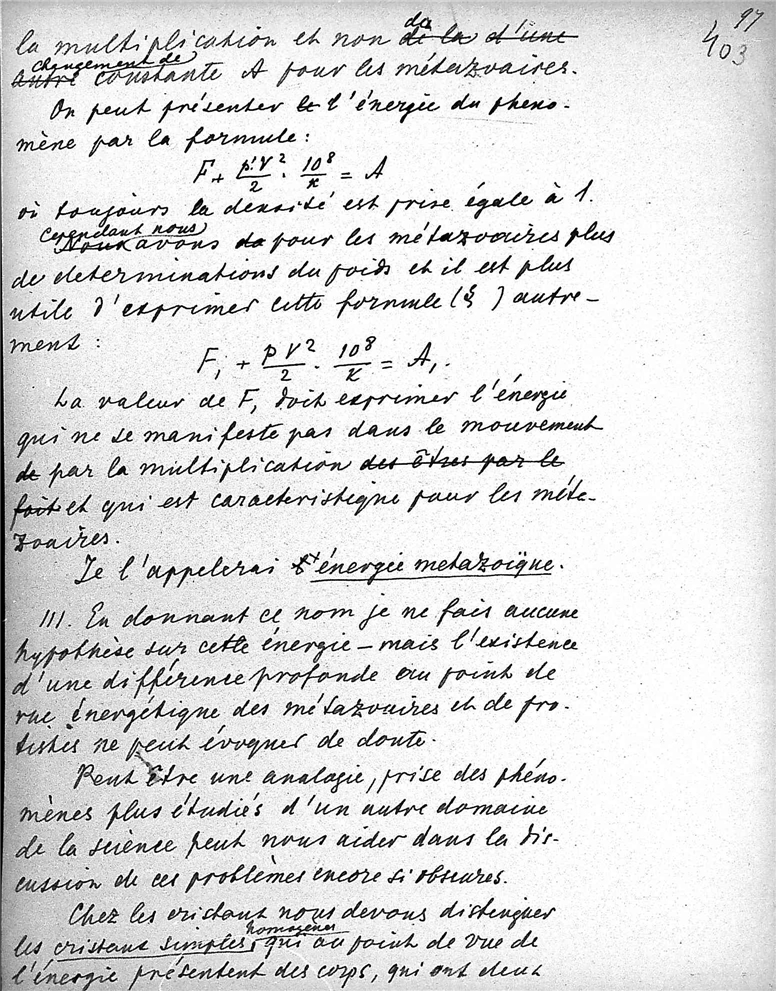 97
403
la multiplication et non de la d'une du
autre changement de constante A pour les métazoaires.
On peut présenter le l'énergie du phéno-
mène par la formule:
F + p'V²/2 · 10⁸/κ = A
où toujours la densité est prise égale à 1.
Cependant nous
Nous avons de pour les métazoaires plus
de determinations du poids et il est plus
utile d'exprimer cette formule (ξ ) autre-
ment :
F₁ + pV²/2 · 10⁸/κ = A₁.
La valeur de F₁ doit exprimer l'énergie
qui ne se manifeste pas dans le mouvement
de par la multiplication des êtres par le
fait et qui est caracteristique pour les méta-
zoaires.
Je l'appelerai l'énergie metazoïque.
III. En donnant ce nom je ne fais aucune
hypothèse sur cette énergie – mais l'existence
d'une différence profonde au point de
vue énergétique des métazoaires et de pro-
tistes ne peut évoquer de doute.
Peut être une analogie, prise des phéno-
mènes plus étudiés d'un autre domaine
de la science peut nous aider dans la dis-
cussion de ces problèmes encore si obscures.
Chez les cristaux nous devons distinguer
homogènes
les cristaux simples, qui au point de vue de
l'énergie présentent des corps, qui ont deux